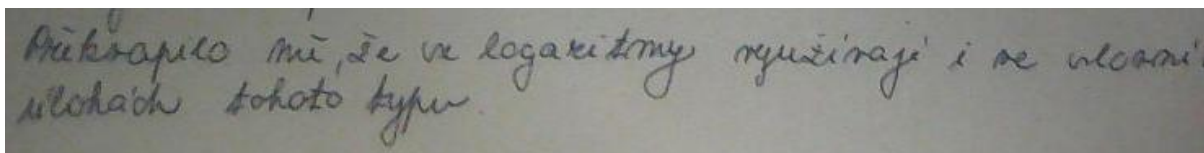 Překvapilo mě, že se logaritmy využívají i ve slovní
úlohách tohoto typu.